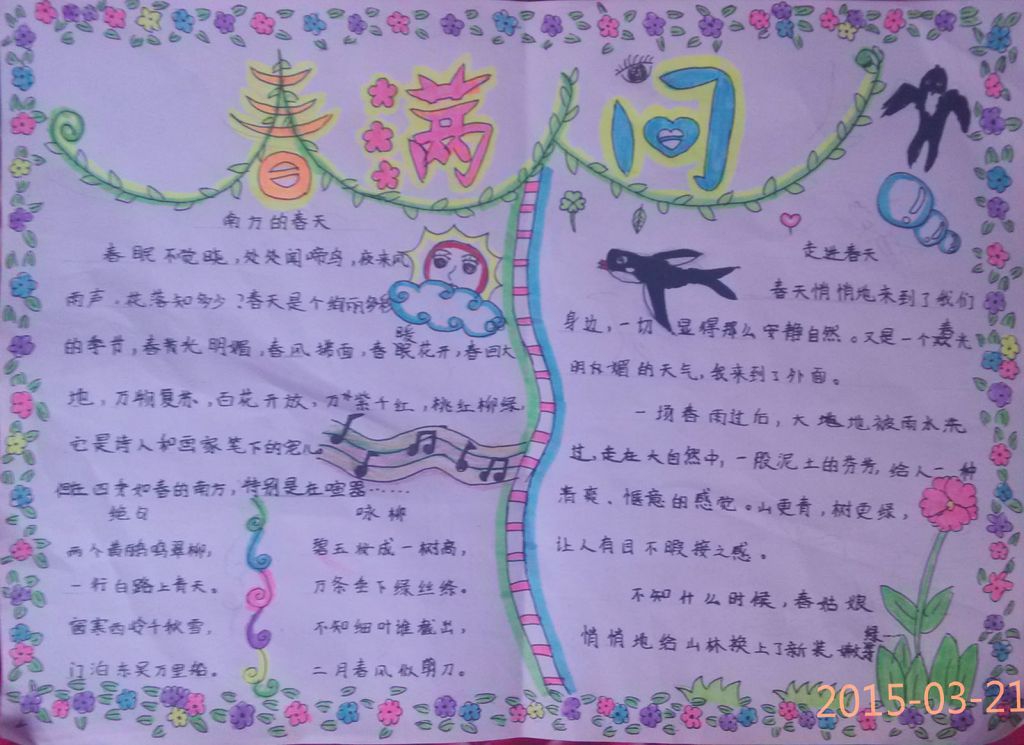 春满间
南方的春天
春眠不觉晓，处处闻啼鸟，夜来风
雨声，花落知多少？春天是个绵雨多
的季节，春光明媚，春风拂面，春暖花开，春回大
地，万物复苏，百花开放，万紫千红，桃红柳绿，
它是诗人和画家笔下的宠儿。
但在四季如春的南方，特别是在喧嚣……
绝句
两个黄鹂鸣翠柳，
一行白路上青天。
窗寒西岭千秋雪，
门泊东吴万里船。
咏柳
碧玉妆成一树高，
万条垂下绿丝绦。
不知细叶谁裁出，
二月春风似剪刀。
走进春天
春天悄悄地来到了我们
身边，一切显得那么安静自然。又是一个春光
明媚的天气，我来到了外面。
一场春雨过后，大地被雨水洗
过，走在大自然中，一股泥土的芬芳，给人一种
清爽、惬意的感觉。山更青，树更绿，
让人有目不暇接之感。
不知什么时候，春姑娘
悄悄地给山林换上了新装 嫩绿
2015-03-21